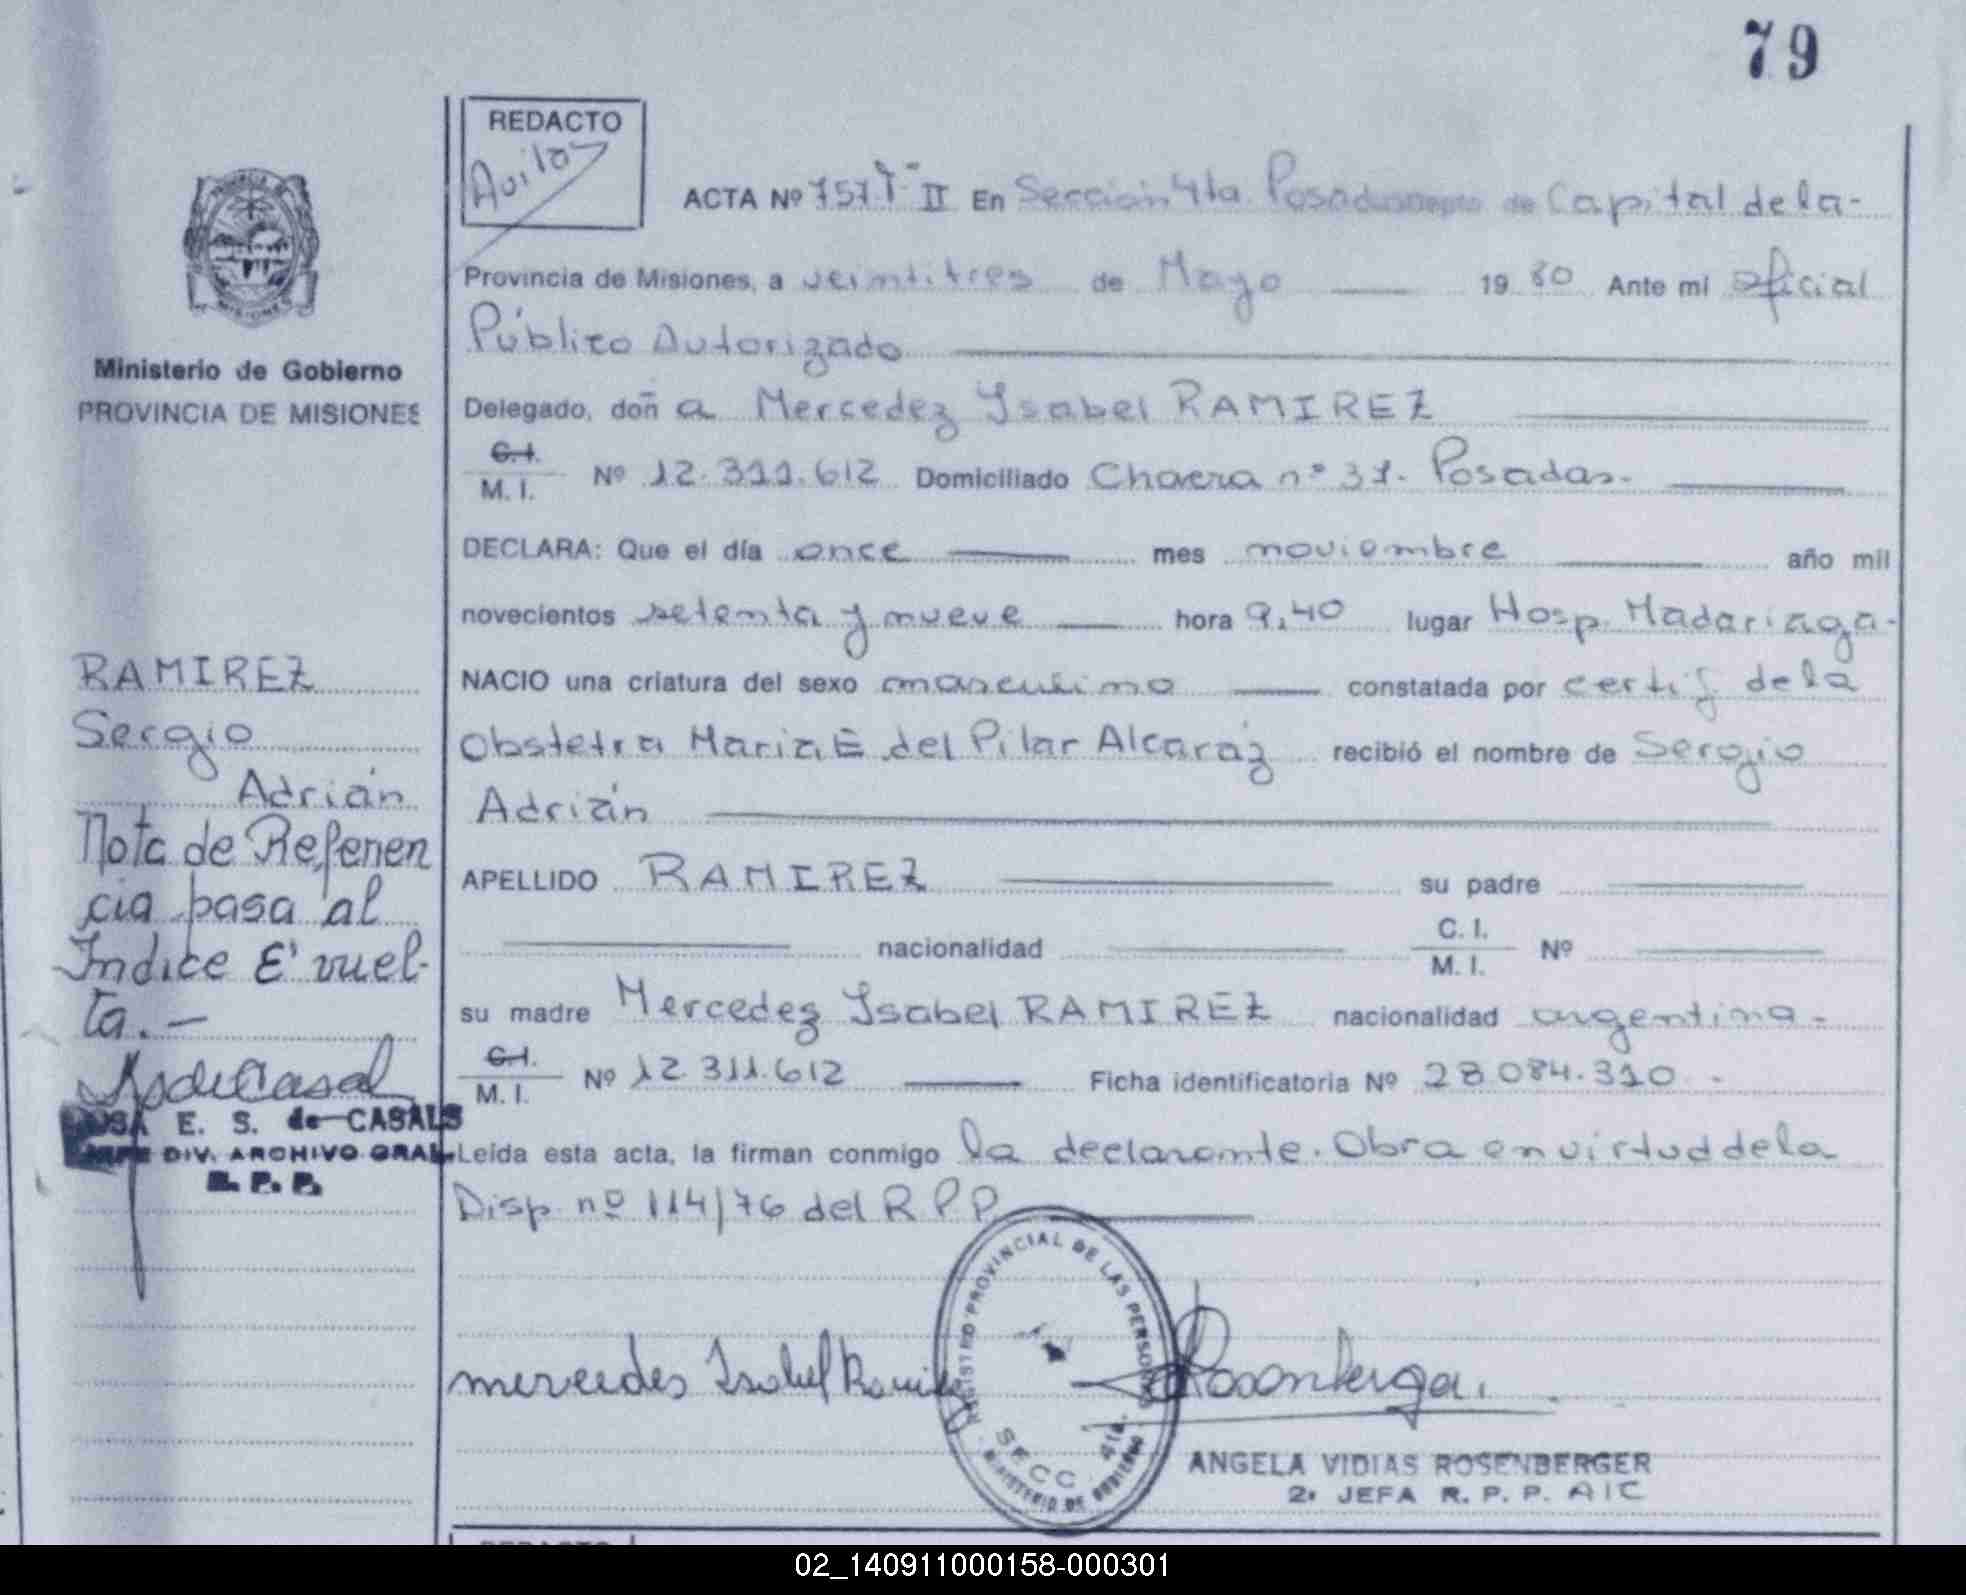 79
REDACTO
Avilas
ACTA Nº 757 Tº II En Sección 4ta. Posadas Capital de la-
Provincia de Misiones, a veintitres de Mayo 19 80 Ante mi oficial
Público Autorizado
Ministerio de Gobierno
PROVINCIA DE MISIONES
Delegado, doñ a Mercedez Ysabel RAMIREZ
C.I.
M. I. Nº 12.311.612 Domiciliado Chacra nº 31. Posadas.
DECLARA: Que el día once mes noviembre año mil
novecientos setenta y nueve hora 9,40 lugar Hosp. Madariaga-
NACIO una criatura del sexo masculino constatada por certif de la
Obstetra Maria E del Pilar Alcaráz recibió el nombre de Sergio
Adrián
APELLIDO RAMIREZ su padre
nacionalidad C. I.
M. I. Nº
su madre Mercedez Ysabel RAMIREZ nacionalidad argentina-
C.I.
M. I. Nº 12.311.612 Ficha identificatoria Nº 28.084.310.-
Leída esta acta, la firman conmigo la declarante. Obra en virtud de la
Disp. nº 114/76 del R P P
RAMIREZ
Sergio
Adrián
Nota de Referen
cia pasa al
Indice E' vuel-
ta.-
E. S. de CASALS
JEFE DIV. ARCHIVO GRAL.
R. P. P.
REGISTRO PROVINCIAL DE LAS PERSONAS
SECC. 4ta.
MINISTERIO DE GOBIERNO
mercedes Isabel Ramirez
Rosenberger
ANGELA VIDIAS ROSENBERGER
2ª JEFA R. P. P. A/C
REDACTO
02_140911000158-000301